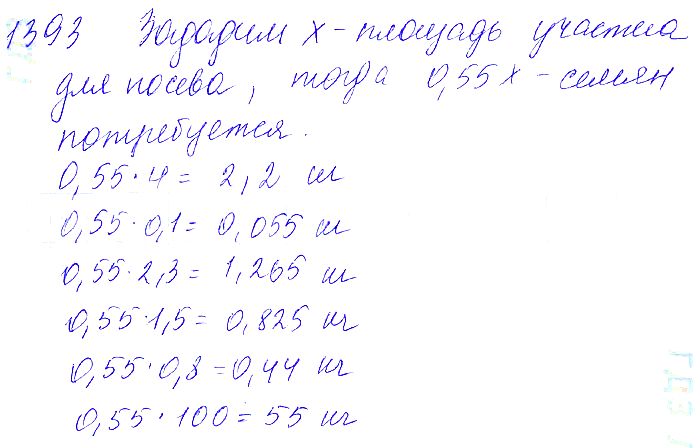 1393 Зададим x - площадь участка
для посева, тогда 0,55x - семян
потребуется.
0,55·4 = 2,2 кг
0,55·0,1 = 0,055 кг
0,55·2,3 = 1,265 кг
0,55·1,5 = 0,825 кг
0,55·0,8 = 0,44 кг
0,55·100 = 55 кг